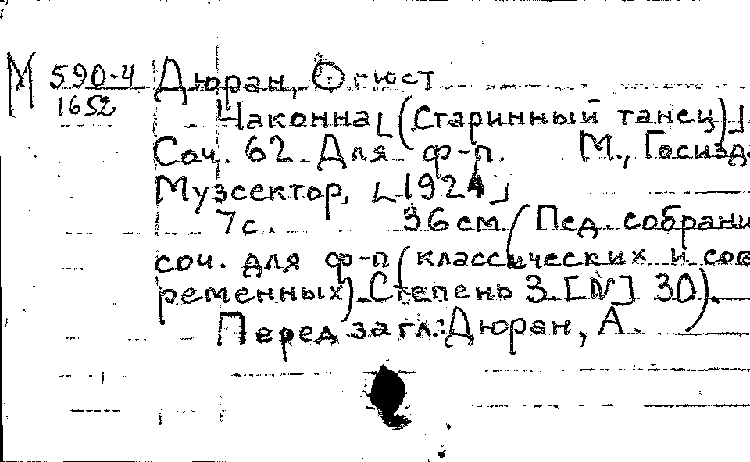 М 590-4 Дюран, Огюст
1652
Чаконна [(Старинный танец)]
Соч. 62. Для ф-п. М., Госизд.
Музсектор, [1924]
7 с. 36 см (Пед. собрани
соч. для ф-п (классических и сов
ременных). Степень 3. [N] 30).
Перед загл.: Дюран, А.